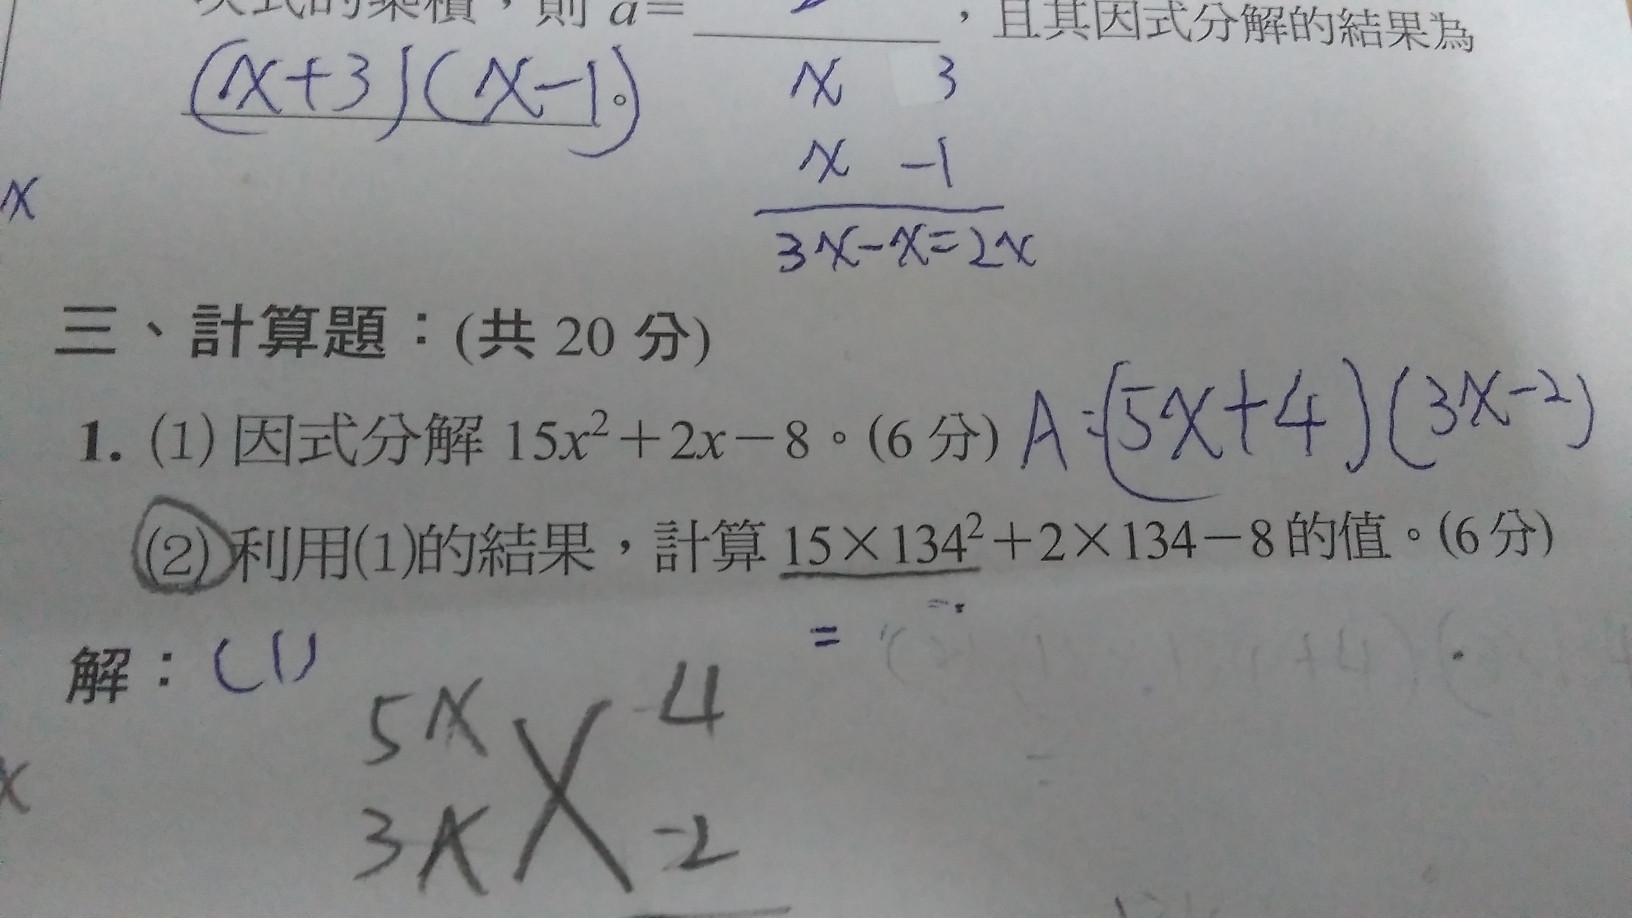 次式的乘積，則 a= ，且其因式分解的結果為
(x+3)(x-1)。
x 3
x -1
3x-x=2x
x
三、計算題：(共 20 分)
1. (1) 因式分解 15x²+2x-8。(6 分) A:(5x+4)(3x-2)
(2) 利用(1)的結果，計算 15×134²+2×134-8 的值。(6 分)
=
解：(1)
5x 4
3x -2
x